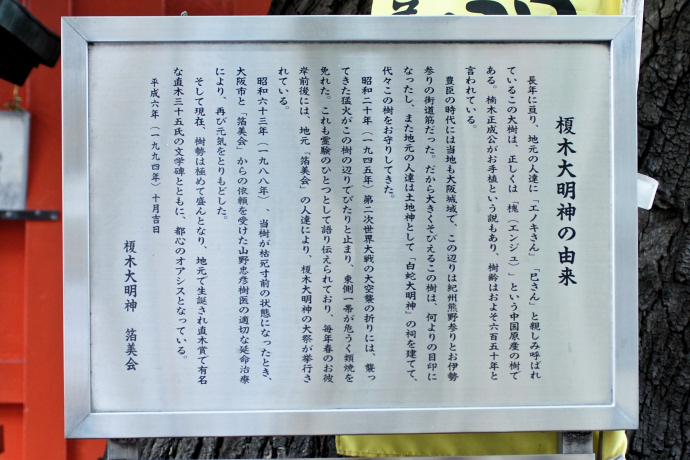 榎木大明神の由来
長年に亘り、地元の人達に「エノキさん」「巳さん」と親しみ呼ばれ
ているこの大樹は、正しくは「槐（エンジュ）」という中国原産の樹で
ある。楠木正成公がお手植という説もあり、樹齢はおよそ六百五十年と
言われている。
豊臣の時代には当地も大阪城域で、この辺りは紀州熊野参りとお伊勢
参りの街道筋だった。だから大きくそびえるこの樹は、何よりの目印に
なったし、また地元の人達は土地神として「白蛇大明神」の祠を建てて、
代々この樹をお守りしてきた。
昭和二十年（一九四五年）第二次世界大戦の大空襲の折りには、襲っ
てきた猛火がこの樹の辺りでぴたりと止まり、東側一帯が危うく類焼を
免れた。これも霊験のひとつとして語り伝えられており、毎年春のお彼
岸前後には、地元「箔美会」の人達により、榎木大明神の大祭が挙行さ
れている。
昭和六十三年（一九八八年）、当樹が枯死寸前の状態になったとき、
大阪市と「箔美会」からの依頼を受けた山野忠彦樹医の適切な延命治療
により、再び元気をとりもどした。
そして現在、樹勢は極めて盛んとなり、地元で生誕され直木賞で有名
な直木三十五氏の文学碑とともに、都心のオアシスとなっている。
平成六年（一九九四年）十月吉日
榎木大明神 箔美会